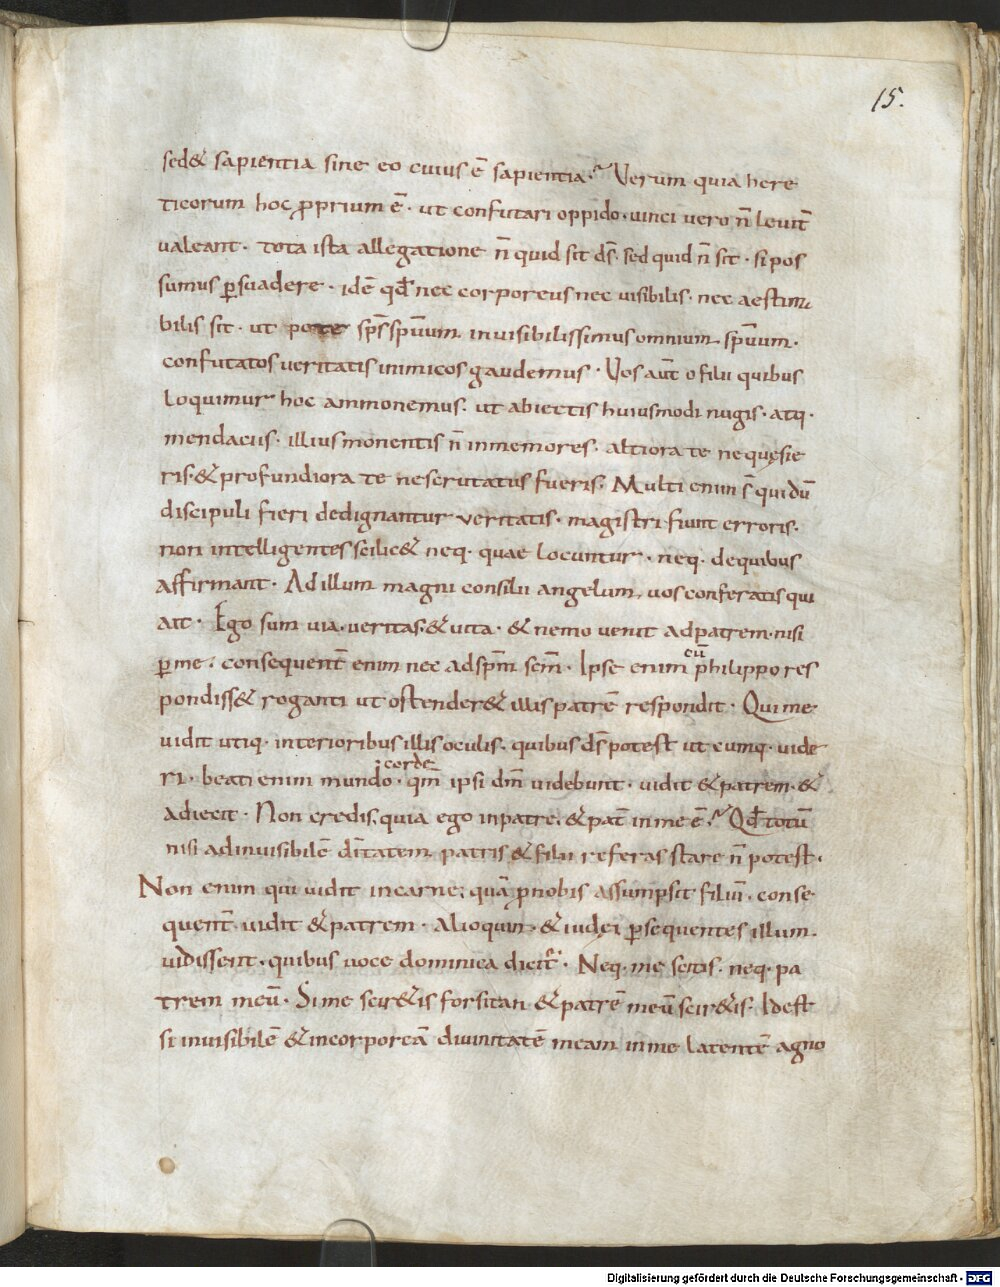 15.
sed& sapientia sine eo cuius ē sapientia. Verum quia here
ticorum hoc ꝓprium ē. ut confutari oppido. uinci uero n̄ leuit̄
ualeant. tota ista allegatione n̄ quid sit ds̄. sed quid n̄ sit. si pos
sumus ꝑsuadere. idē qd̄ nec corporeus nec uisibilis. nec aestima
bilis sit. ut pote sp̄s sp̄uum inuisibilissimus omnium sp̄uum.
confutatos ueritatis inimicos gaudemus. Vos aūt o filii quibus
loquimur hoc ammonemus. ut abiectis huiusmodi nugis. atq.
mendaciis. illius monentis n̄ inmemores. altiora te ne quęsie
ris. & profundiora te ne scrutatus fueris. Multi enim s̄ qui dū
discipuli fieri dedignantur ueritatis. magistri fiunt erroris.
non intelligentes scilic& neq. quae locuntur. neq. de quibus
affirmant. Ad illum magni consilii angelum, uos conferatis qui
ait. Ego sum uia. ueritas. & uita. & nemo uenit ad patrem. nisi
ꝑ me. consequent̄ enim nec ad sp̄m sc̄m. Ipse enim cū philippo res
pondiss& roganti ut ostender& illis patrē respondit. Qui me
uidit utiq. interioribus illis oculis. quibus ds̄ potest ut cumq. uide
ri. beati enim mundo corde. qm̄ ipsi dm̄ uidebunt. uidit & patrem. &
adiecit. Non credis. quia ego in patre. & pat̄ in me ē. Qd̄ totū
nisi ad inuisibilē di̅tatem patris & filii referas stare n̄ potest.
Non enim qui uidit in carne. quā ꝓ nobis assumpsit filiū. conse
quent̄. uidit & patrem. Alioquin & iudei ꝑsequentes illum
uidissent. quibus uoce dominica dicit̄. Neq. me scitis. neq. pa
trem meū. Si me scir&is forsitan & patrē meū scir&is. Idest
si inuisibilē & incorporeā diuinitatē meam in me latentē agno
Digitalisierung gefördert durch die Deutsche Forschungsgemeinschaft - DFG